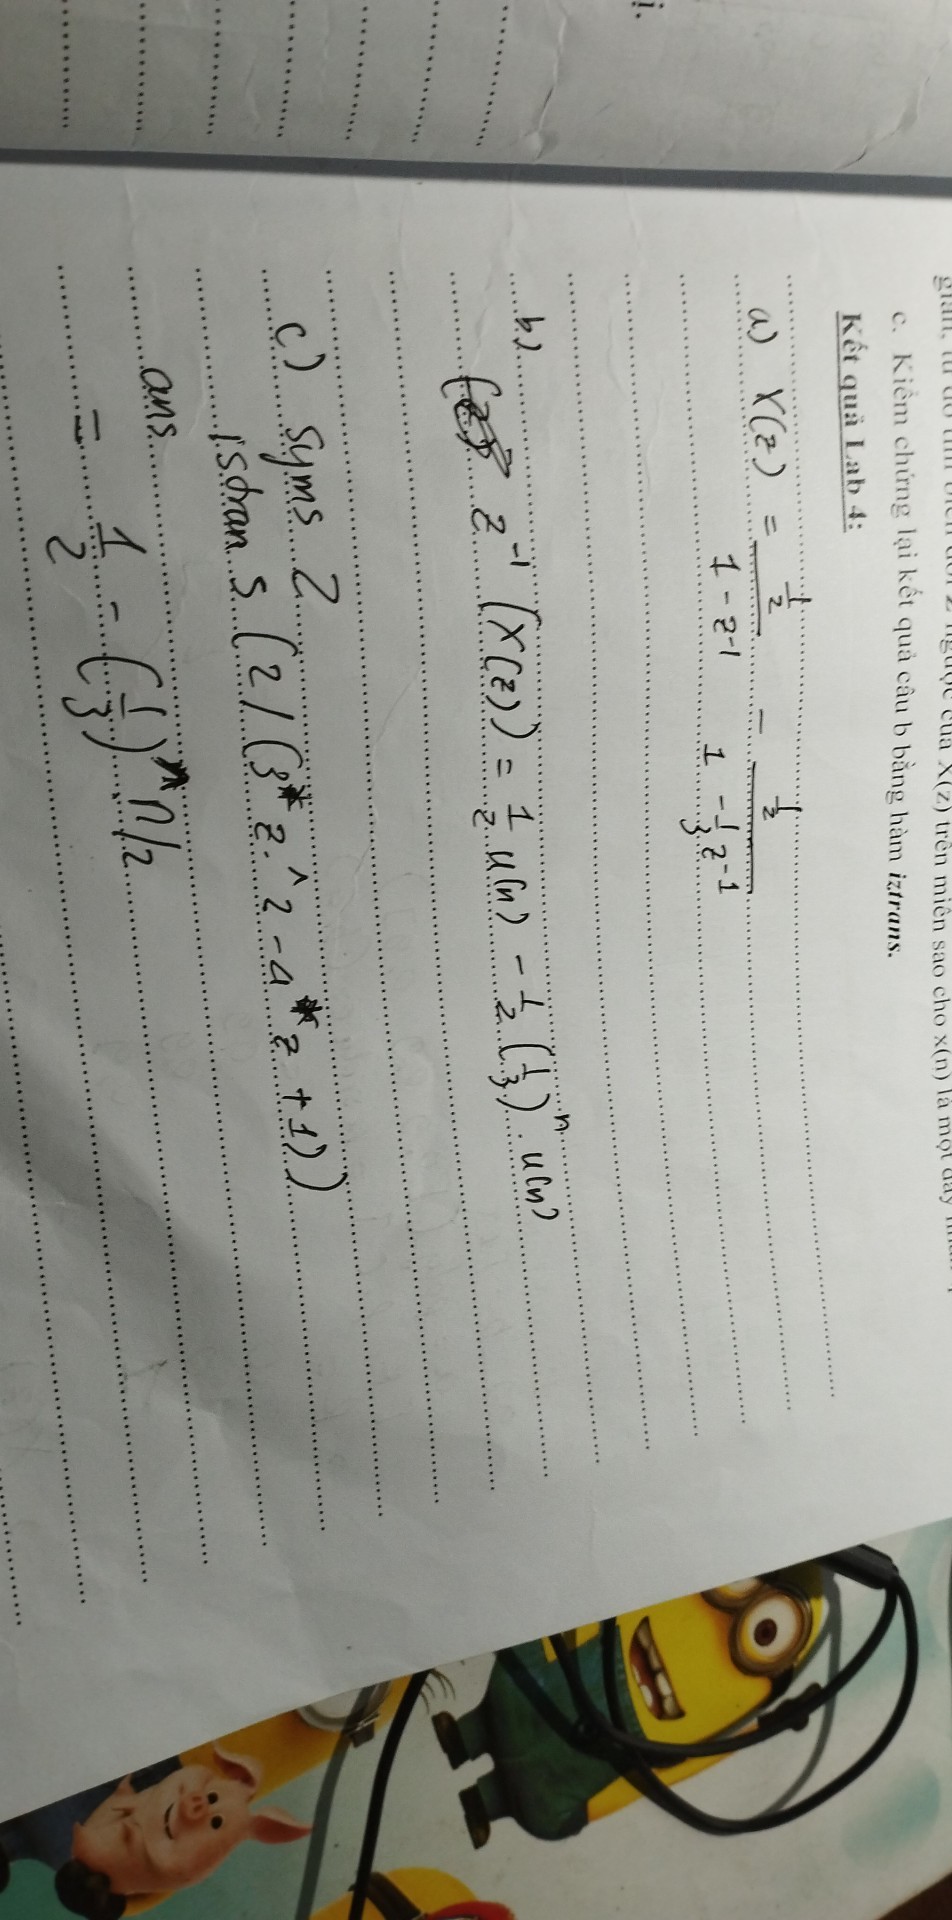 gian, từ đó tìm biến đổi Z ngược của X(z) trên miền sao cho x(n) là một dãy
c. Kiểm chứng lại kết quả câu b bằng hàm iztrans.
Kết quả Lab 4:
a) X(z) = \frac{\frac{1}{2}}{1 - z^{-1}} - \frac{\frac{1}{2}}{1 - \frac{1}{3} z^{-1}}
b) z^{-1} (X(z)) = \frac{1}{2} u(n) - \frac{1}{2} (\frac{1}{3})^n . u(n)
c) syms z
istran s (2/(3*z.^2-4*z+1))
ans
= \frac{1}{2} - (\frac{1}{3})^n n/2
ị.